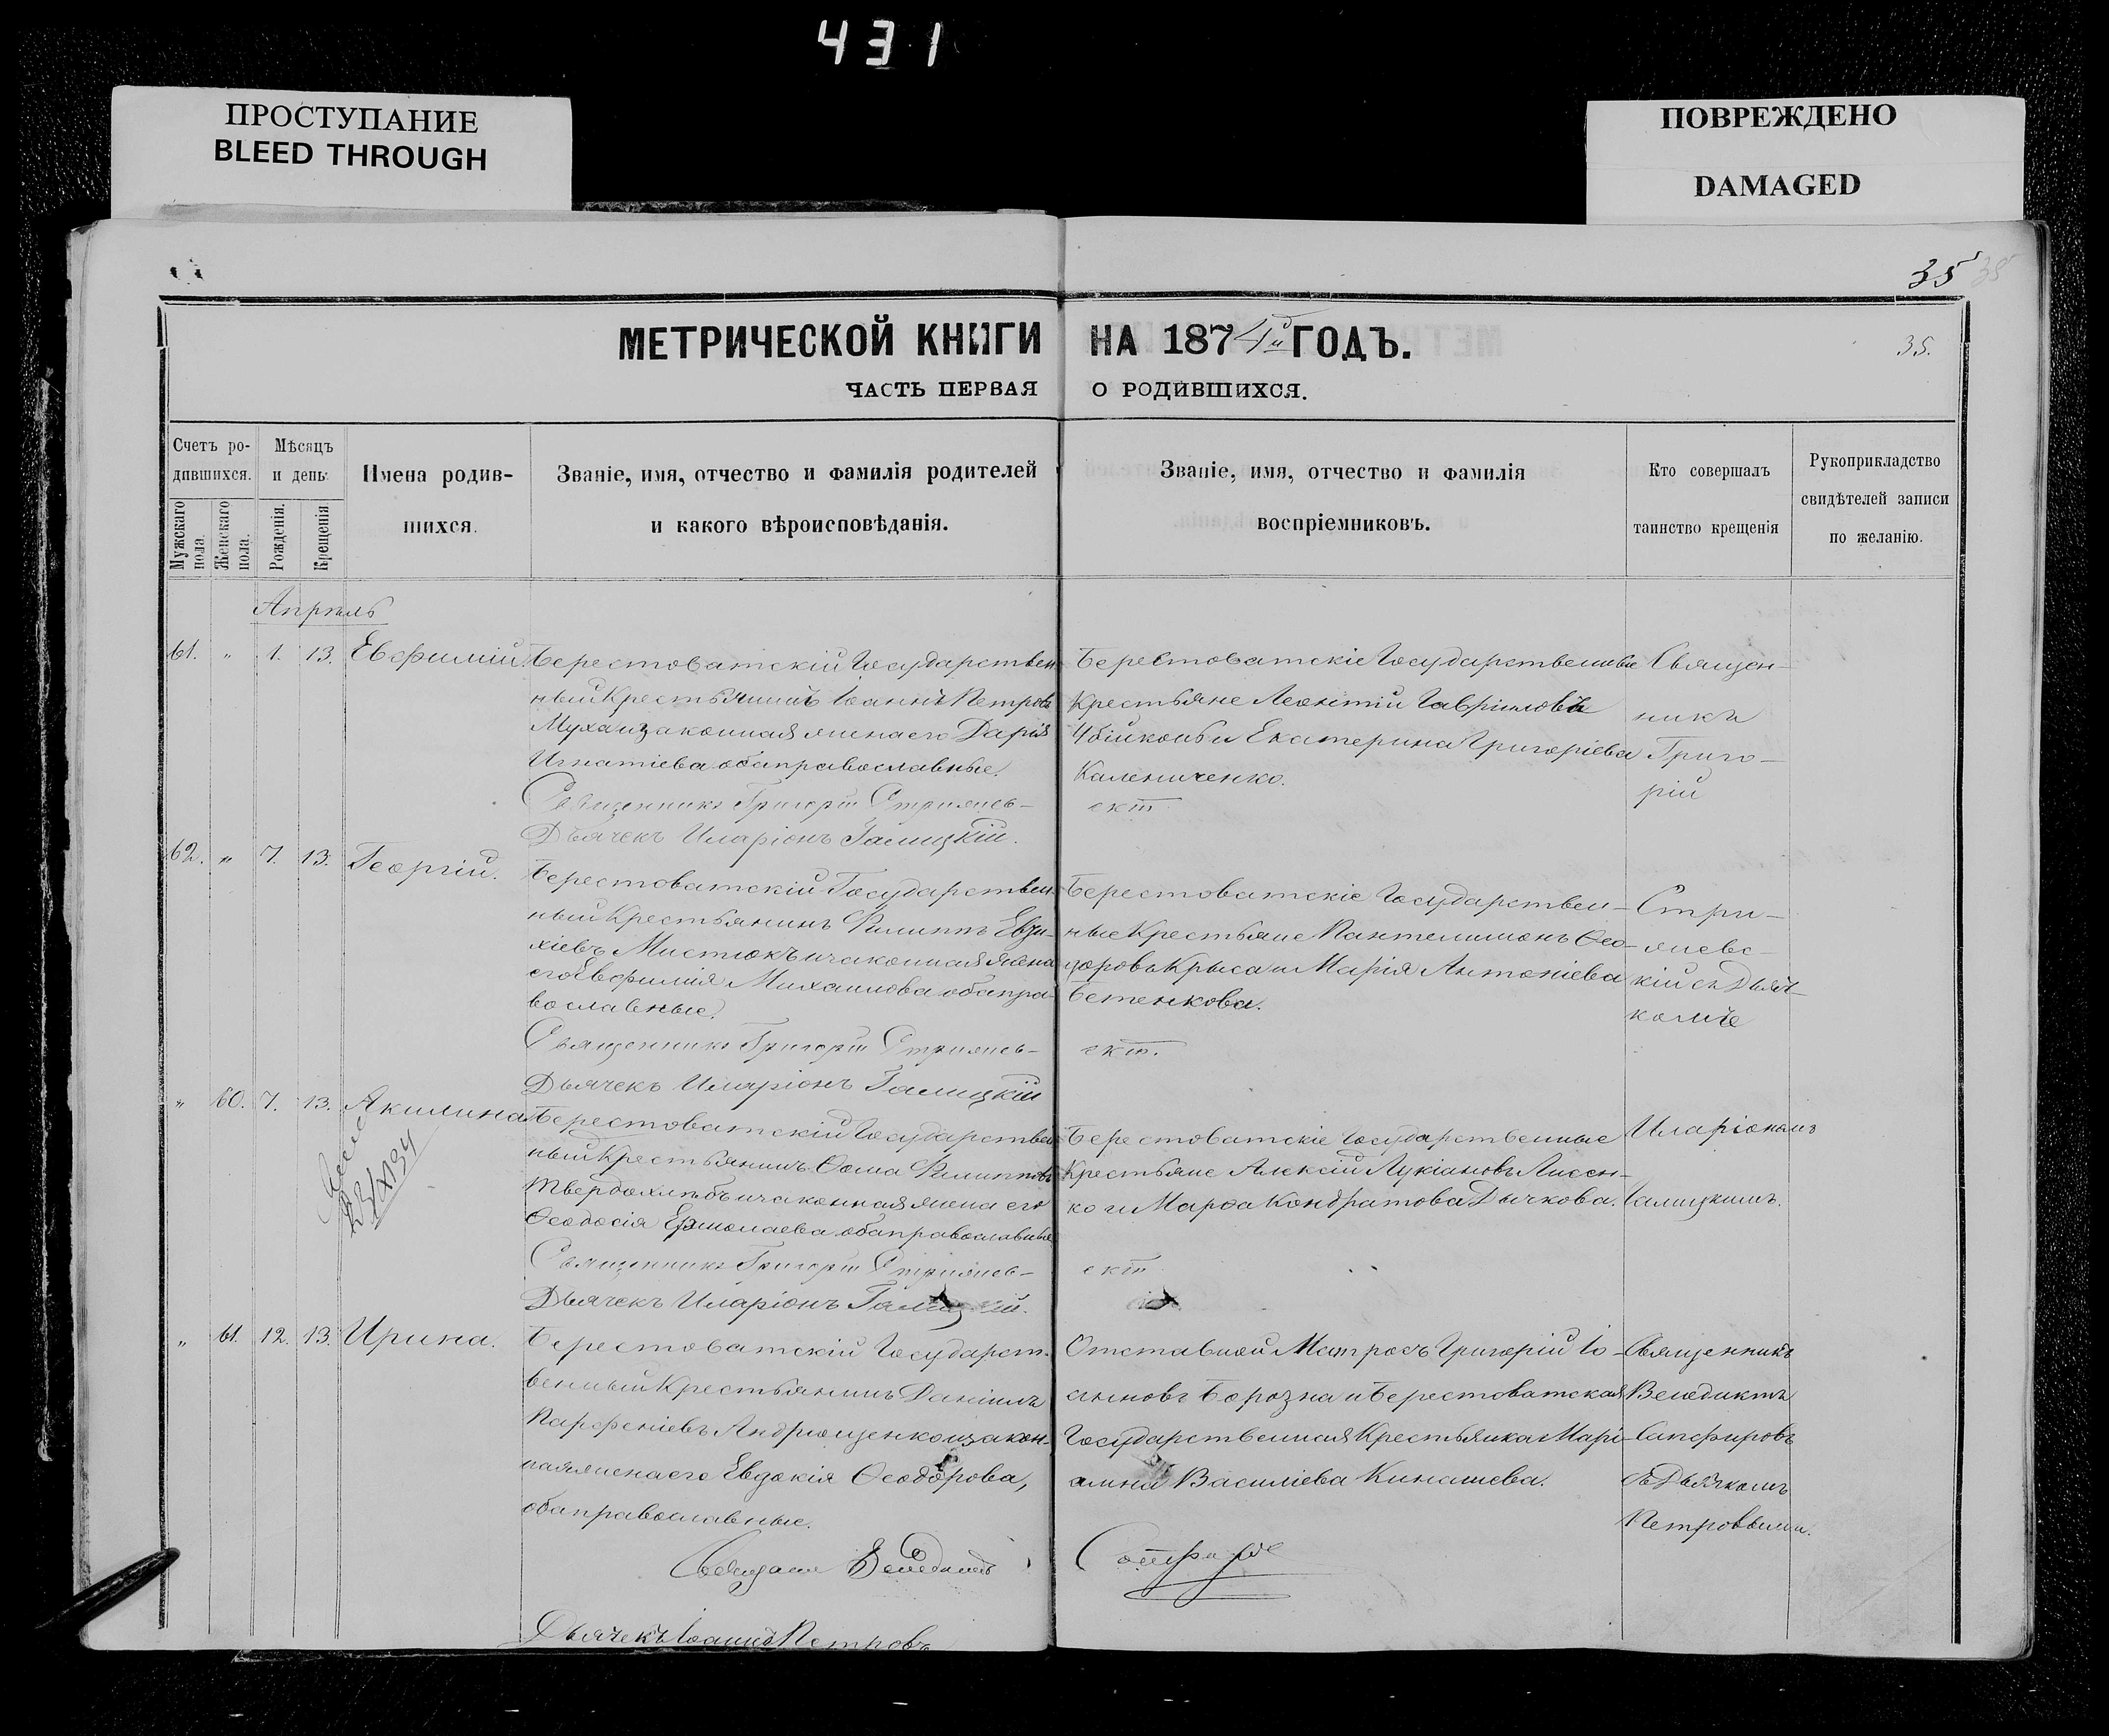 431
ПРОСТУПАНИЕ
BLEED THROUGH
ПОВРЕЖДЕНО
DAMAGED
35
35.
МЕТРИЧЕСКОЙ КНИГИ НА 1874й ГОДЪ.
ЧАСТЬ ПЕРВАЯ О РОДИВШИХСЯ.
Счетъ ро-
дившихся.
Мужскаго пола.
Женскаго пола.
Мѣсяцъ
и день.
Рожденія.
Крещенія
Имена родив-
шихся.
Званіе, имя, отчество и фамилія родителей
и какого вѣроисповѣданія.
Званіе, имя, отчество и фамилія
воспріемниковъ.
Кто совершалъ
таинство крещенія
Рукоприкладство
свидѣтелей записи
по желанію.
Апрѣль
61. " 1. 13. Евфимій.
Берестоватскій Государствен-
ный Крестьянинъ Іоаннъ Петровъ
Муха и законная жена его Дарія
Игнатіева оба православные.
Священникъ Григорій Стріяпев-
Дьячекъ Иларіонъ Галицкій.
Берестоватскіе Государственные
Крестьяне Леонтій Гавріиловъ
Убійконь и Екатерина Григоріева
Калениченко.
скій
Священ-
никъ
Григо-
рій
62. " 7. 13. Георгій.
Берестоватскій Государствен-
ный Крестьянинъ Филиппъ Евти-
хіевъ Мистюкъ и законная жена
его Евфимія Михаилова оба пра-
вославные.
Священникъ Григорій Стріяпев-
Дьячекъ Иларіонъ Галицкій
Берестоватскіе Государствен-
ные Крестьяне Пантелимонъ Ѳео-
доровъ Крыса и Марія Антоніева
Бетенкова.
скій.
Стри-
япевс-
кій съ Дьяч-
комъ
" 60. 7. 13. Акилина
23/X 1934
Берестоватскій Государствен-
ный Крестьянинъ Ѳома Филипповъ
Твердохлѣбъ и законная жена его
Ѳеодосія Ермолаева оба православные
Священникъ Григорій Стріяпев-
Дьячекъ Иларіонъ Галицкій.
Берестоватскіе Государственные
Крестьяне Алексій Лукіановъ Лисен-
ко и Марѳа Кондратова Дычкова.
скій
Иларіономъ
Галицкимъ.
" 61. 12. 13. Ирина.
Берестоватскій Государст-
венный Крестьянинъ Даніилъ
Парфеніевъ Андрющенко и закон-
ная жена его Евдокія Ѳеодорова,
оба православные.
Священникъ Венедиктъ
Дьячекъ Іоаннъ Петровъ
Отставной Матросъ Григорій Іо-
анновъ Борозна и Берестоватская
Государственная Крестьянка Марі-
амна Василіева Кинашева.
Сапфировъ
Священникъ
Венедиктъ
Сапфировъ
съ Дьячкомъ
Петровымъ.